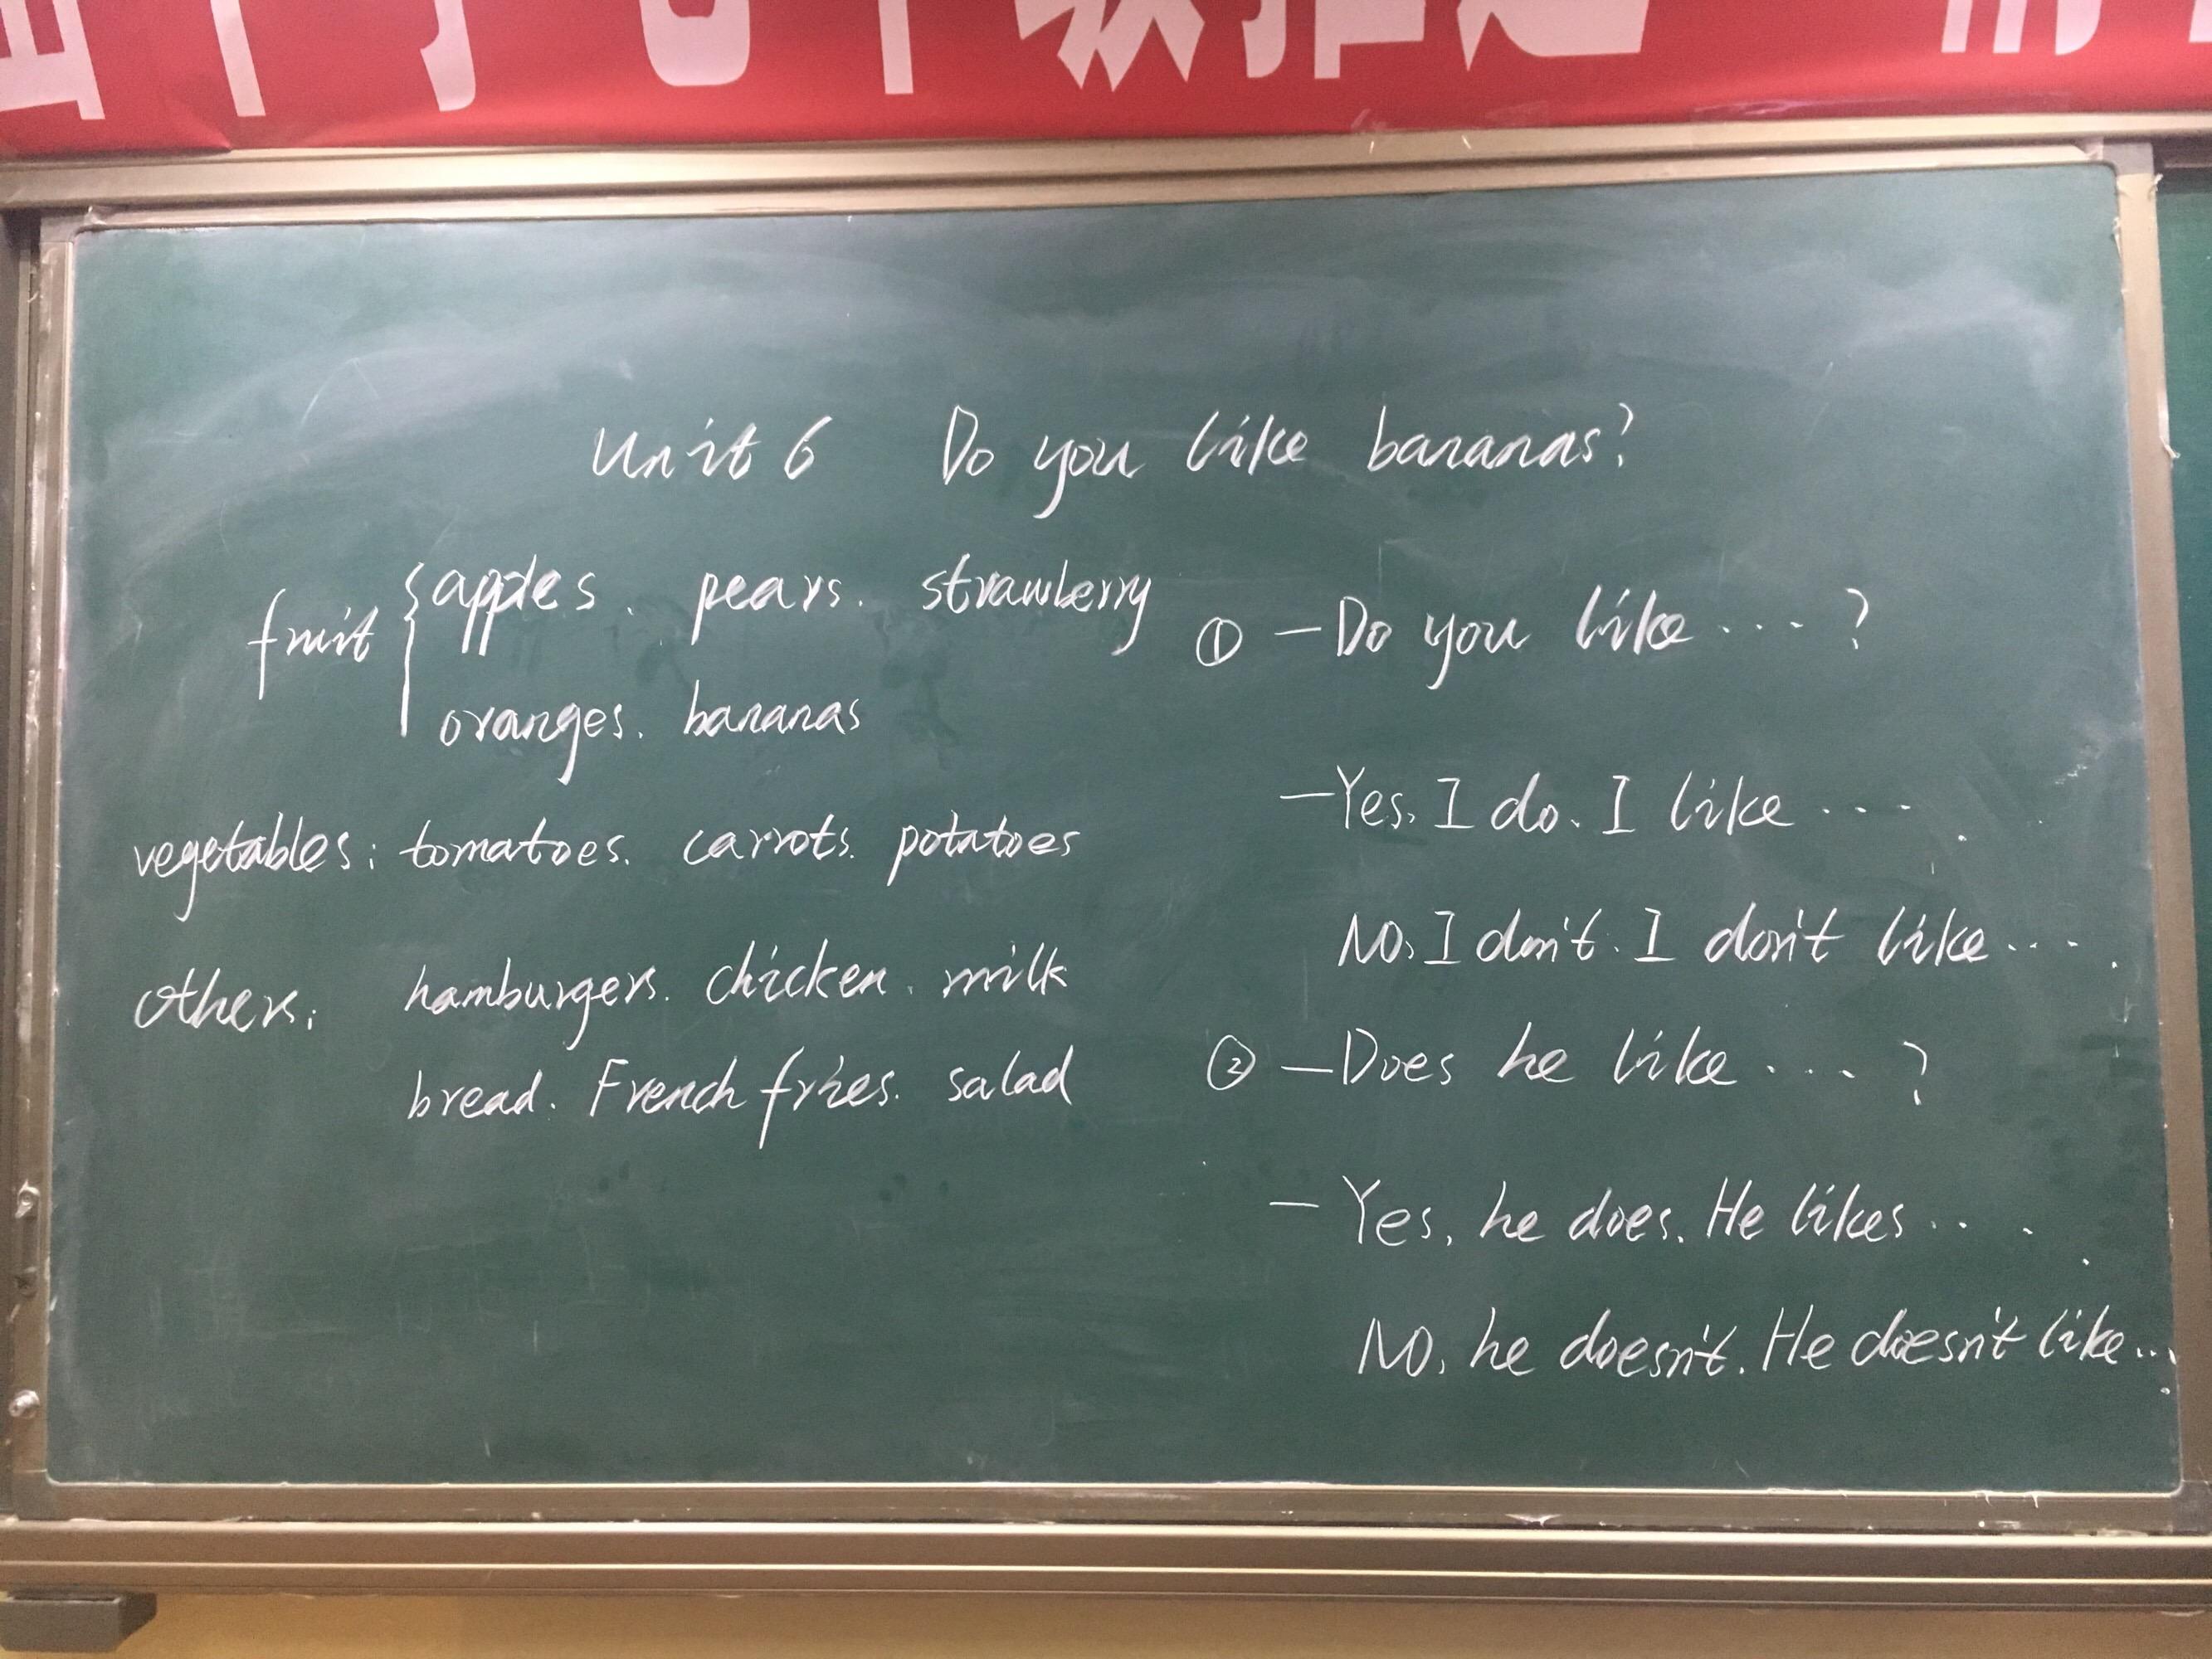 Unit 6 Do you like bananas?
fruit { apples. pears. strawberry
oranges. bananas
vegetables: tomatoes. carrots. potatoes
others: hamburgers. chicken. milk
bread. French fries. salad
① —Do you like ····?
—Yes, I do. I like ····.
No, I don't. I don't like ····.
② —Does he like ····?
— Yes, he does. He likes ···.
No, he doesn't. He doesn't like...